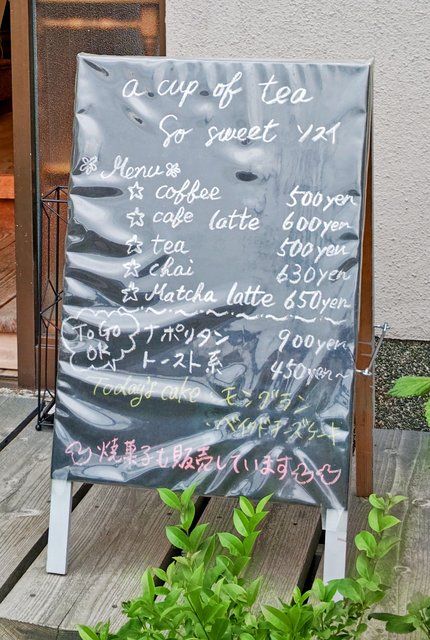 a cup of tea
So sweet ソスイ
Menu
coffee 500yen
cafe latte 600yen
tea 500yen
chai 630yen
Matcha latte 650yen
To Go OK
ナポリタン 900yen
トースト系 450yen〜
Today's cake モンブラン
・ベイクドチーズケーキ
焼菓子も販売しています